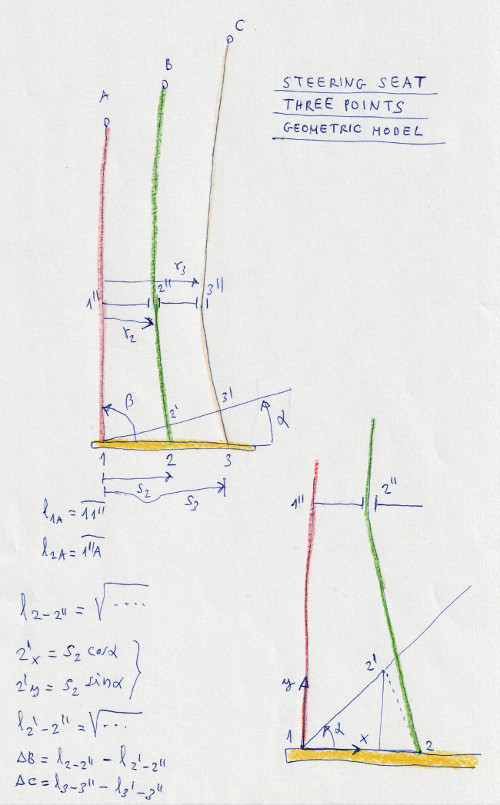 C
B
A
STEERING SEAT
THREE POINTS
GEOMETRIC MODEL
r3
1" 2" 3"
r2
β 2' 3' α
1 2 3
s2
s3
l1A = 11"
l2A = 1"A
l2-2" = √....
2'x = s2 cosα
2'y = s2 sinα
l2'-2" = √...
ΔB = l2-2" - l2'-2"
ΔC = l3-3" - l3'-3"
1" 2"
2'
y
1 α x 2